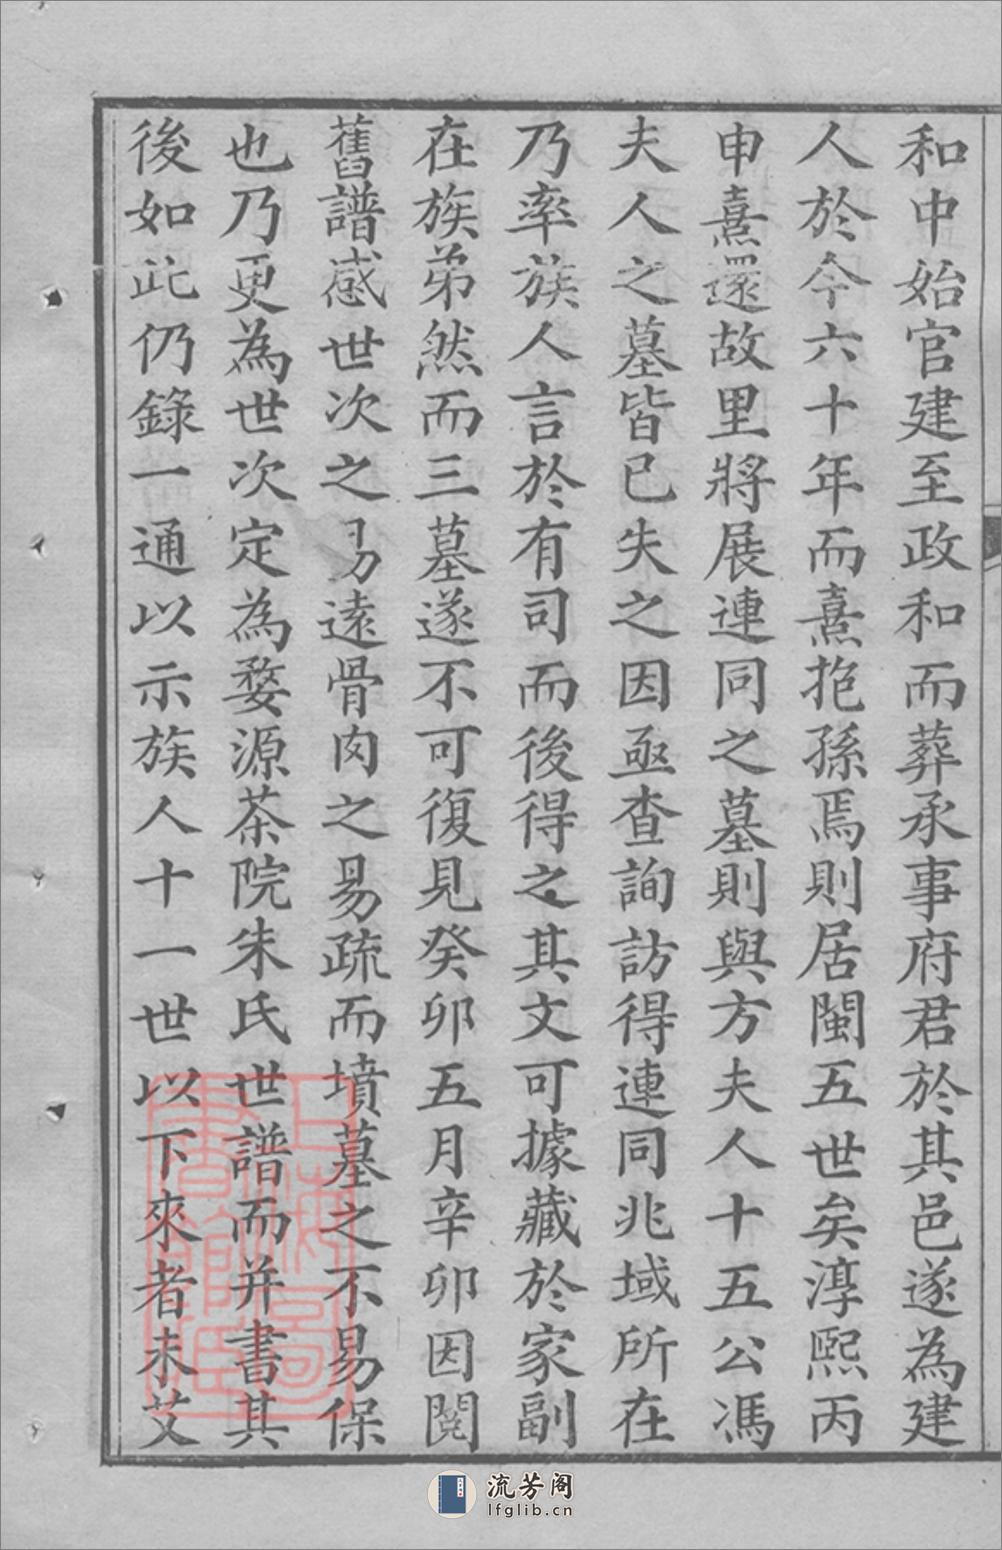 和中始官建至政和而葬承事府君於其邑遂為建
人於今六十年而熹抱孫焉則居閩五世矣淳熙丙
申熹還故里將展連同之墓則與方夫人十五公馮
夫人之墓皆已失之因亟查詢訪得連同兆域所在
乃率族人言於有司而後得之其文可據藏於家副
在族弟然而三墓遂不可復見癸卯五月辛卯因閱
舊譜感世次之易遠骨肉之易疏而墳墓之不易保
也乃更為世次定為婺源茶院朱氏世譜而并書其
後如此仍錄一通以示族人十一世以下來者未艾
上海圖書館藏
流芳阁
lfglib.cn